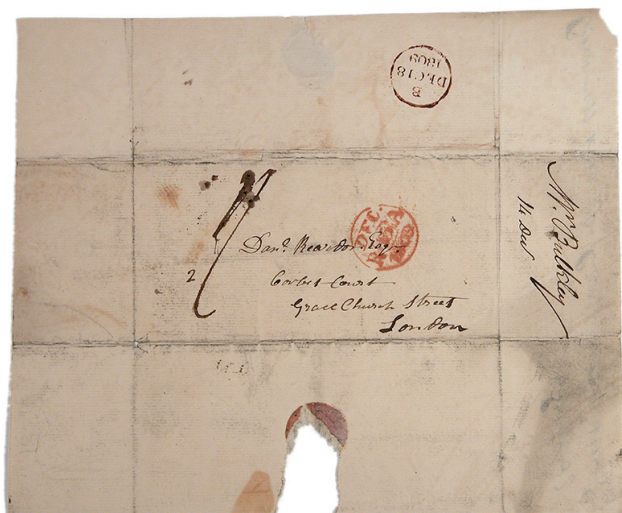 B
DEC 18
1809
DEC
2
Danl. Reardon Esqr.
Corbet Court
Grace Church Street
London
Mr. Bulkley
14 Dec